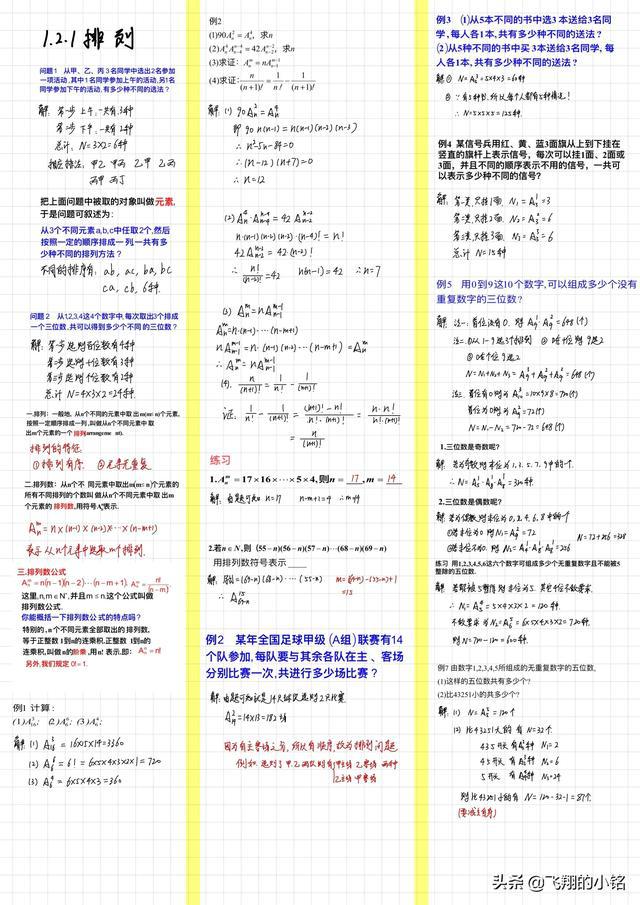 1.2.1 排列
问题1 从甲、乙、丙3名同学中选出2名参加
一项活动,其中1名同学参加上午的活动,另1名
同学参加下午的活动,有多少种不同的选法?
解: 第一步 上午:一共有3种
第二步 下午:一共有2种
总计: N=3×2=6种
甲乙 甲丙 乙甲 乙丙
丙甲 丙乙
把上面问题中被取的对象叫做元素,
于是问题可叙述为:
从3个不同元素a,b,c中任取2个,然后
按照一定的顺序排成一列,一共有多
少种不同的排列方法?
不同的排序有: ab, ac, ba, bc
ca, cb, 6种.
问题2 从1,2,3,4这4个数字中,每次取出3个排成
一个三位数,共可以得到多少个不同的三位数?
解: 第一步 选则百位数有4种
第二步 选则十位数有3种
第三步 选则个位数有2种
总计 N=4×3×2=24种.
一.排列: 一般地, 从n个不同的元素中取出m(m≤n)个元素,
按照一定顺序排成一列,叫做从n个不同元素中取
出m个元素的一个排列(arrangement).
排列的特征
①排列有序 ②元素无重复
二.排列数: 从n个不同元素中取出m(m≤n)个元素的
所有不同排列的个数叫做从n个不同元素中取出m
个元素的排列数,用符号Aₙᵐ表示.
Aₙᵐ = n×(n-1)×(n-2)×…×(n-m+1)
表示从n个元素中选取m个排列.
三.排列数公式
Aₙᵐ=n(n−1)(n−2)⋯(n−m+1). Aₙᵐ= n!/(n−m)!
这里,n,m∈N*,并且m≤n.这个公式叫做
排列数公式.
你能概括一下排列数公式的特点吗?
特别的, n个不同元素全部取出的排列数,
等于正整数1到n的连乘积,正整数1到n的
连乘积,叫做n的阶乘,用n!表示,即: Aₙⁿ=n!
另外,我们规定0!=1.
例1 计算:
(1)A₁₆³; (2)A₆⁶; (3)A₆⁴;
解: (1) A₁₆³ = 16×15×14=3360
(2) A₆⁶ = 6! = 6×5×4×3×2×1=720
(3) A₆⁴ = 6×5×4×3 = 360
例2
(1)90Aₙ²=Aₙ⁴, 求n
(2)Aₙ⁴Aₙ₋₄ⁿ⁻⁴=42Aₙ₋₂ⁿ⁻², 求n
(3)求证: Aₙᵐ=nAₙ₋₁ᵐ⁻¹
(4)求证: n/(n+1)! = 1/n! − 1/(n+1)!
解: (1) 90Aₙ² = Aₙ⁴
即 90 n(n-1) = n(n-1)(n-2)(n-3)
∴ n²-5n-84=0
∴ (n-12)(n+7)=0
∴ n=12
(2) Aₙ⁴·Aₙ₋₄ⁿ⁻⁴ = 42 Aₙ₋₂ⁿ⁻²
n·(n-1)(n-2)(n-3)·(n-4)! = n!
42Aₙ₋₂ⁿ⁻² = 42·(n-2)!
∴ n!/(n-2)! =42 n(n-1)=42 ∴n=7
(3) Aₙᵐ = nAₙ₋₁ᵐ⁻¹
Aₙᵐ=n·(n-1)⋯(n-m+1)
nAₙ₋₁ᵐ⁻¹ = n·(n-1)(n-2)⋯(n-m+1) = Aₙᵐ
∴ Aₙᵐ = nAₙ₋₁ᵐ⁻¹
(4). n/(n+1)! = 1/n! - 1/(n+1)!
证: 1/n! - 1/(n+1)! = ((n+1)!-n!)/(n!·(n+1)!) = n·n!/(n!·(n+1)!)
= n/(n+1)!
练习
1.Aₙᵐ=17×16×⋯×5×4,则n= 17 ,m= 14
解: 由题可知 n=17 n-m+1=4 ∴m=14
2.若n∈N,则 (55−n)(56−n)(57−n)⋯(68−n)(69−n)
用排列数符号表示
解: 原式=(69-n)(68-n)⋯(55-n) m=(69-n)-(55-n)+1
∴ A₆₉₋ₙ¹⁵ =15
例2 某年全国足球甲级(A组)联赛有14
个队参加,每队要与其余各队在主、客场
分别比赛一次,共进行多少场比赛?
解: 由题可知就是14只球队选则2只比赛
A₁₄² =14×13=182场
因为有主客场之分,所以有顺序,故为排列问题
例如 选则了甲乙两队则有甲主场 乙客场 两种
乙主场 甲客场
例3 (1)从5本不同的书中选3本送给3名同
学,每人各1本,共有多少种不同的送法?
(2)从5种不同的书中买3本送给3名同学,每
人各1本,共有多少种不同的送法?
解: ① N=A₅³=5×4×3=60种
② ∵有5种书,所以每个人都有5种情况!
∴ N=5×5×5=125种.
例4 某信号兵用红、黄、蓝3面旗从上到下挂在
竖直的旗杆上表示信号,每次可以挂1面、2面或
3面,并且不同的顺序表示不用的信号,一共可
以表示多少种不同的信号?
解: 第一类,只挂1面, N₁=A₃¹=3
第二类,只挂2面, N₂=A₃²=6
第三类,只挂3面, N₃=A₃³=6
总计 N=15种
例5 用0到9这10个数字,可以组成多少个没有
重复数字的三位数?
解: 法一: 首位没有0. 则A₉¹·A₉²=648(个)
N=N₁+N₂+N₃=A₉³+A₉²+A₉²=648(个)
N=N₁-N₂=720-72=648(个)
1.三位数是奇数呢?
解: 若为奇数则末位为1,3,5,7,9中的一个.
∴ N=A₅¹·A₈¹·A₈¹=320种
2.三位数是偶数呢?
解: 若为偶数,则末位为0,2,4,6,8中的一个
①若末位为0 则A₉²=72
②若末位不为0, 则A₄¹·A₈¹·A₈¹=256
N=72+256=328
练习 用1,2,3,4,5,6这六个数字可组成多少个无重复数字且不能被5
整除的五位数.
解: 若能被5整除则末位为5. 其他4位不做要求.
∴ N₁=A₅⁴=5×4×3×2=120种.
不做要求为N₂=A₆⁵=6×5×4×3×2=720种.
则N=720-120=600种.
例7 由数字1,2,3,4,5所组成的无重复数字的五位数,
(1)这样的五位数共有多少个?
(2)比43251小的共多少个?
解: (1) N=A₅⁵=120个
(2) 比43251大的有N=32个.
435开头 有A₂²种 N₁=2
45开头 有A₃³种 N₂=6
5开头 有A₄⁴种 N₃=24
则比43251小的有 N=120-32-1=87个.
(要减去自身)
头条 @飞翔的小铭